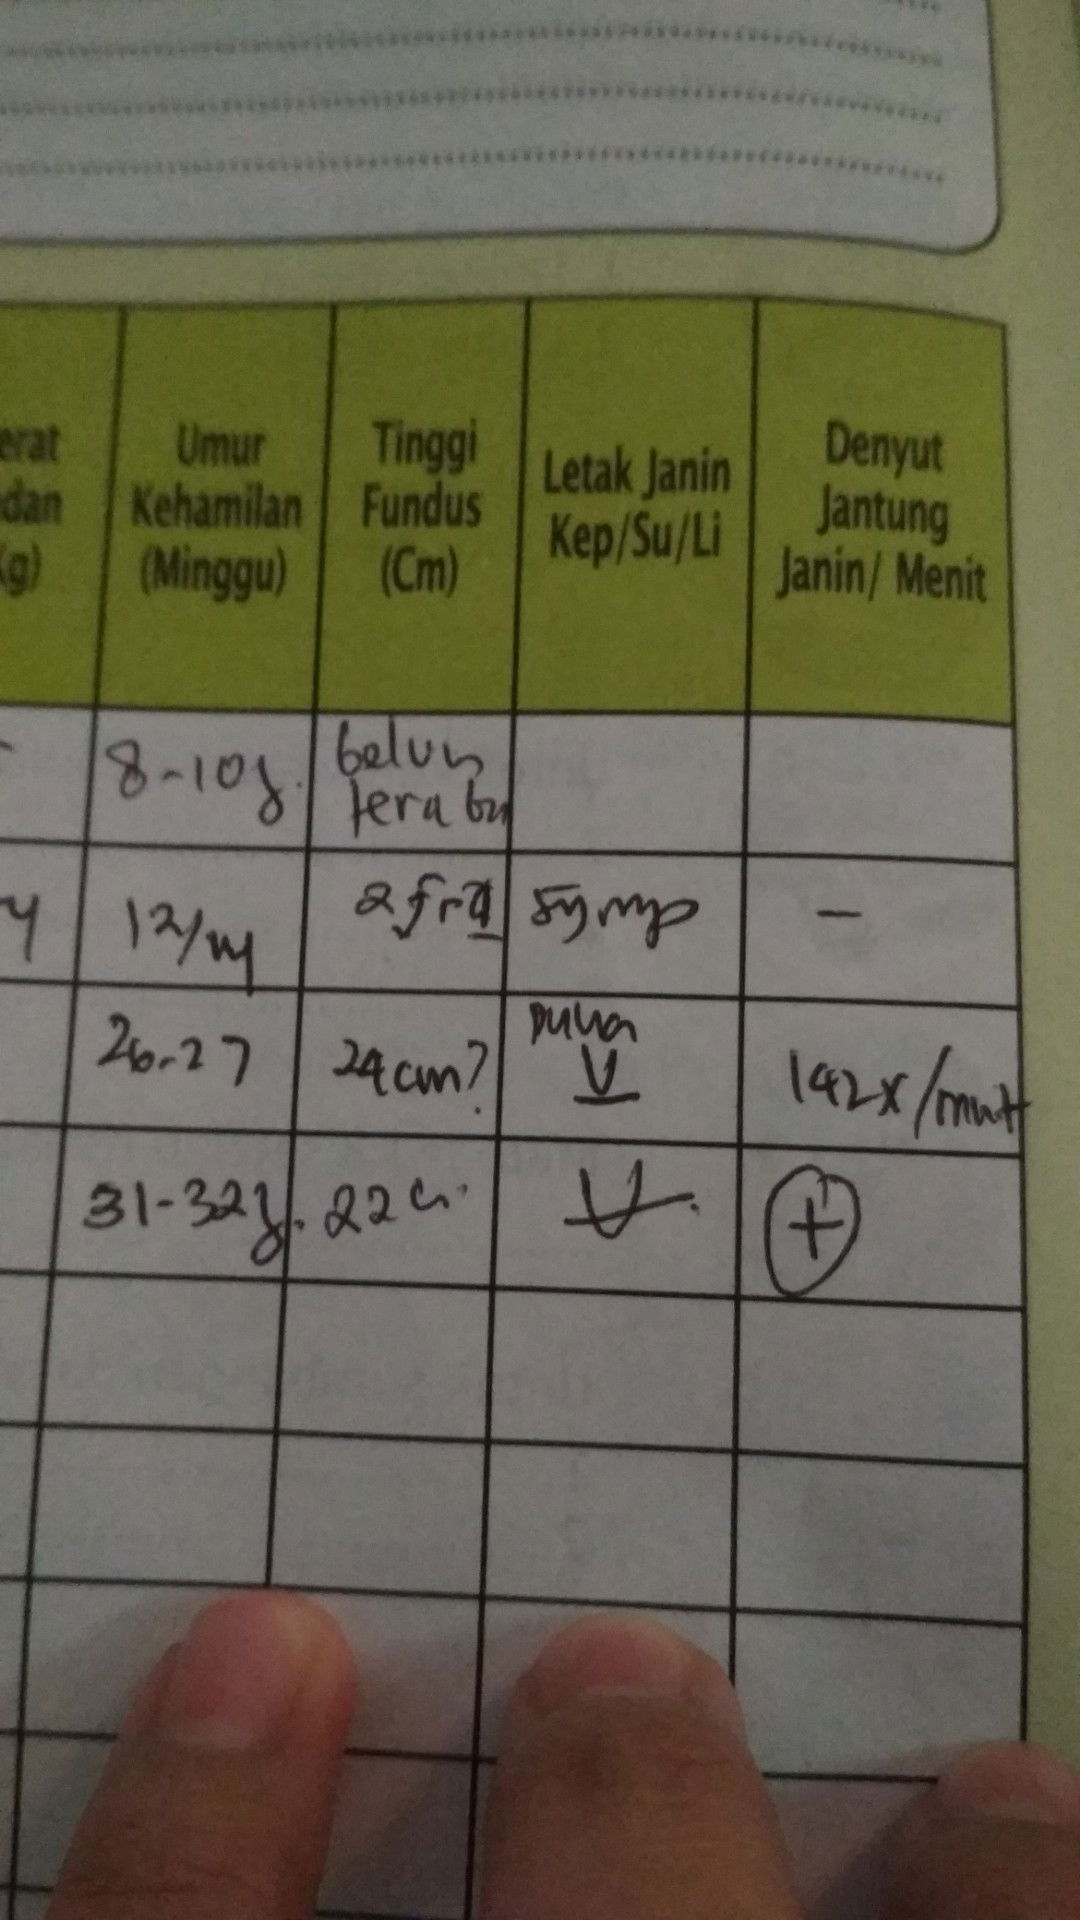 erat
dan
(g)
Umur
Kehamilan
(Minggu)
Tinggi
Fundus
(Cm)
Letak Janin
Kep/Su/Li
Denyut
Jantung
Janin/ Menit
8-10
belum
teraba
4
12/
2
symp
-
26-27
24cm?
V
142x/mnt
31-32
22 c
V
+